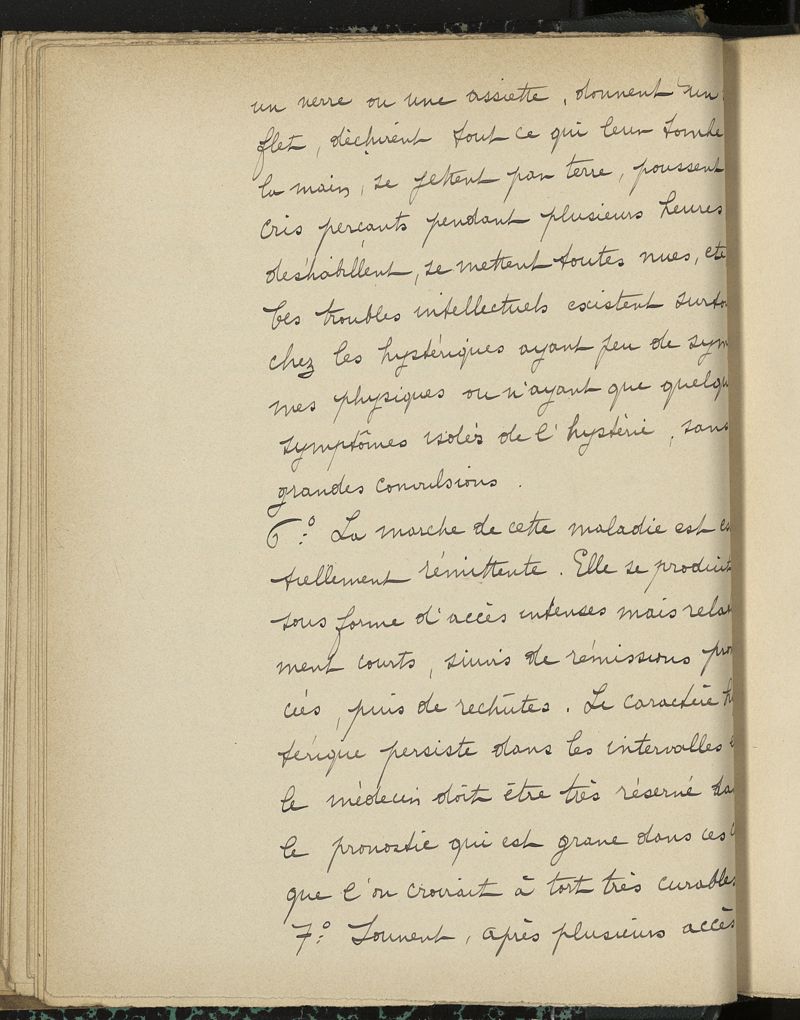 un verre ou une assiette, donnent un
flet, déchirent tout ce qui leur tombe
la main, se jettent par terre, poussent
cris perçants pendant plusieurs heures
deshabillent, se mettent toutes nues, etc
Ces troubles intellectuels existent surto
chez les hystériques ayant peu de sym
mes physiques ou n'ayant que quelqu
symptômes isolés de l'hystérie, sans
grandes convulsions.
6:° La marche de cette maladie est es
tiellement rémittente. Elle se produit
sous forme d'accès intenses mais relat
ment courts, suivis de rémissions pron
cés, puis de rechûtes. Le caractère hy
térique persiste dans les intervalles
le médecin doit être très réservé da
le pronostic qui est grave dans ces
que l'on croirait à tort très curables
7:° Souvent, après plusieurs accès